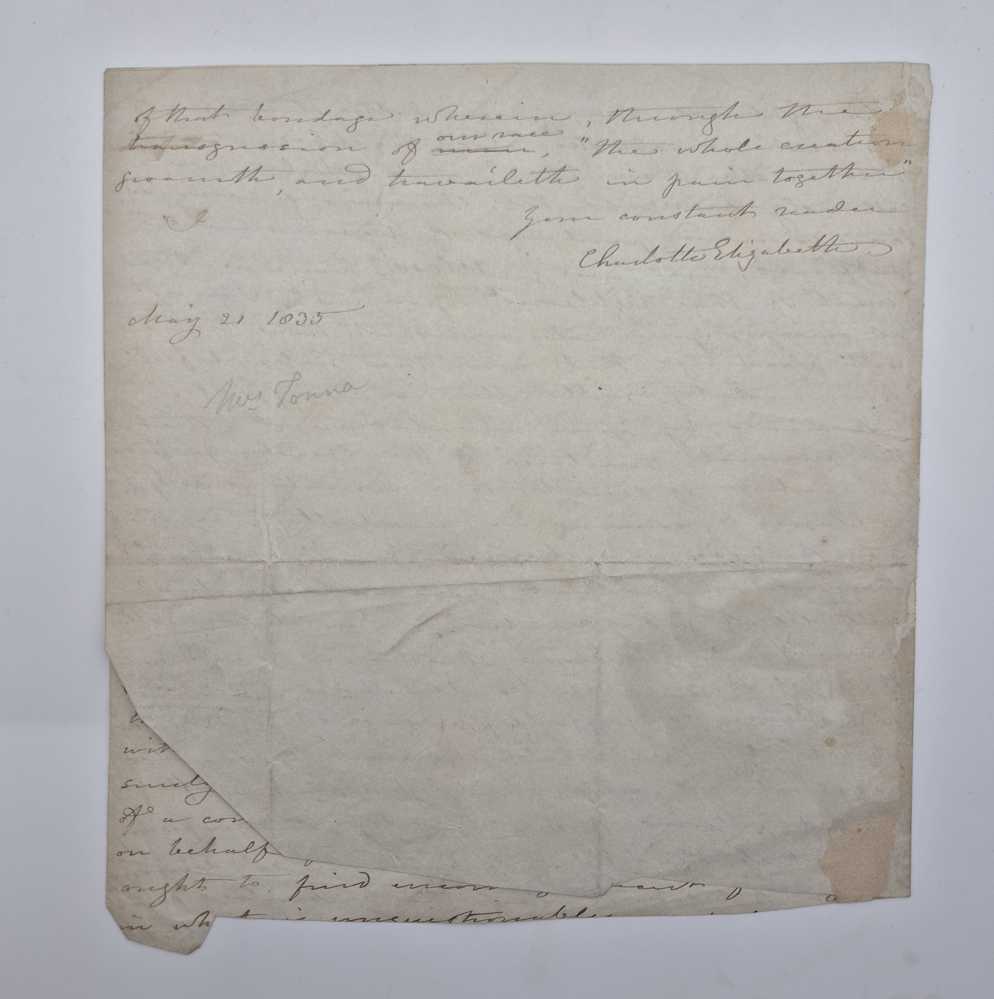 of that bondage wherein, through the
transgression of our race men, "the whole creation
groaneth, and travaileth in pain together"
Your constant reader
Charlotte Elizabeth.
May 21 1835
Mrs Tonna
with
surely
of a con
on behalf
ought to find
in what is unquestionable